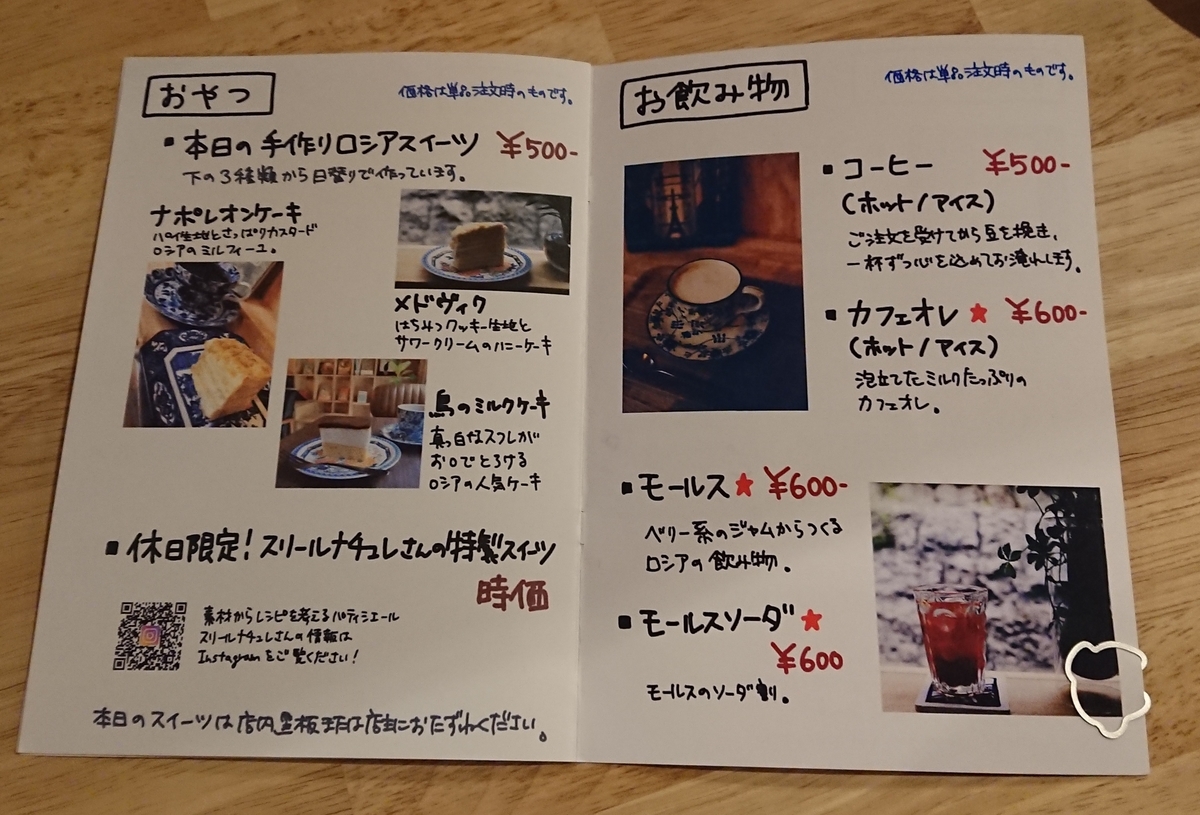 おやつ
価格は単品注文時のものです。
▪本日の手作りロシアスイーツ ¥500-
下の3種類から日替りで作っています。
ナポレオンケーキ
パイ生地とさっぱりカスタード
ロシアのミルフィーユ。
メドヴィク
はちみつクッキー生地と
サワークリームのハニーケーキ
鳥のミルクケーキ
真っ白なスフレが
お口でとろける
ロシアの人気ケーキ
▪休日限定!スリールナチュレさんの特製スイーツ
時価
素材からレシピを考えるパティシエール
スリールナチュレさんの情報は
Instagramをご覧ください!
本日のスイーツは店内黒板または店主におたずねください。
お飲み物
価格は単品注文時のものです。
▪コーヒー ¥500-
(ホット/アイス)
ご注文を受けてから豆を挽き、
一杯ずつ心を込めてお淹れします。
▪カフェオレ★ ¥600-
(ホット/アイス)
泡立てたミルクたっぷりの
カフェオレ。
▪モールス★ ¥600-
ベリー系のジャムからつくる
ロシアの飲み物。
▪モールスソーダ★
¥600
モールスのソーダ割り。